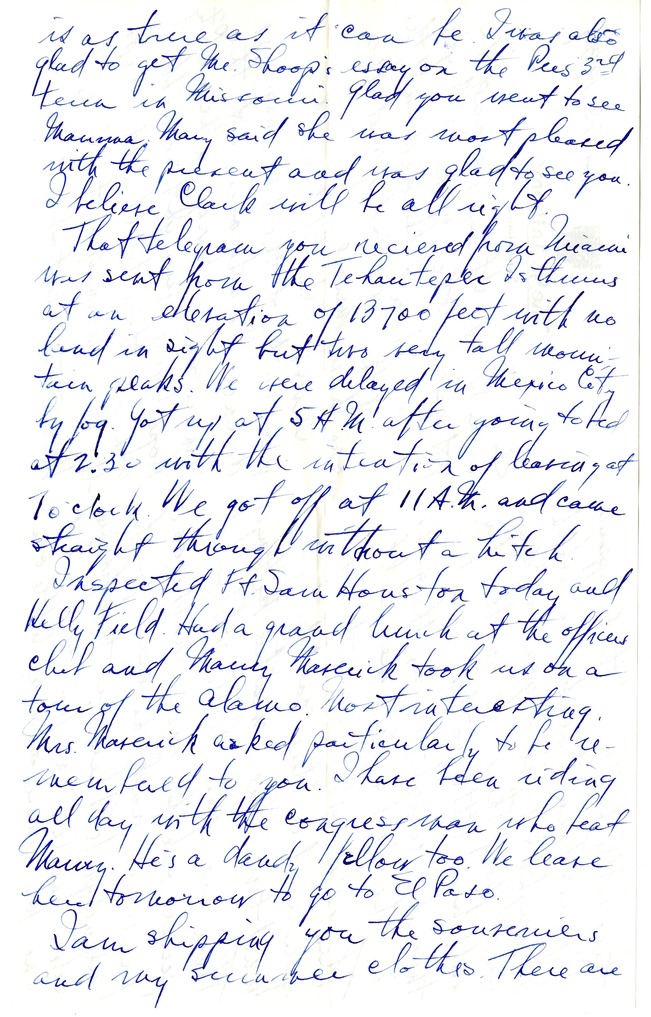 is as true as it can be. I was also
glad to get Mr. Shoop's essay on the Pres 3rd
term in Missouri. Glad you went to see
Mamma. Mary said she was most pleased
with the present and was glad to see you.
I believe Clark will be all right.
That telegram you recieved from Miami
was sent from the Tehauntepec Isthmus
at an elevation of 13700 feet with no
land in sight but two very tall moun-
tain peaks. We were delayed in Mexico City
by fog. Got up at 5 A.M. after going to bed
at 2:30 with the intention of leaving at
7 o'clock. We got off at 11 A.M. and came
straight through without a hitch.
Inspected Ft. Sam Houston today and
Kelly Field. Had a grand lunch at the officers
club and Maury Maverick took us on a
tour of the Alamo. Most interesting.
Mrs. Maverick asked particularly to be re-
membered to you. I have been riding
all day with the congressman who beat
Maury. He's a dandy fellow too. We leave
here tomorrow to go to El Paso.
I am shipping you the souveniers
and my summer clothes. There are